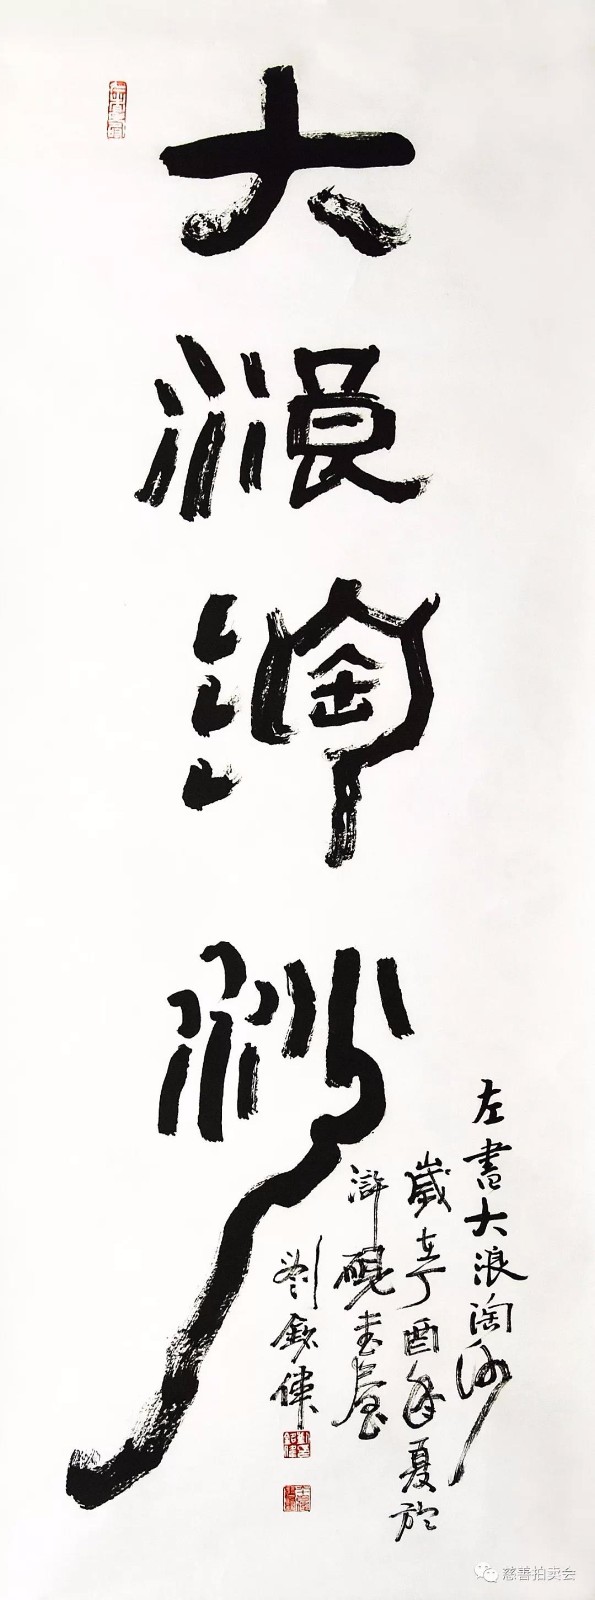 大浪淘沙
左書大浪淘沙
歲在丁酉年夏於
滸硯書屋
劉欽偉
慈善拍卖会